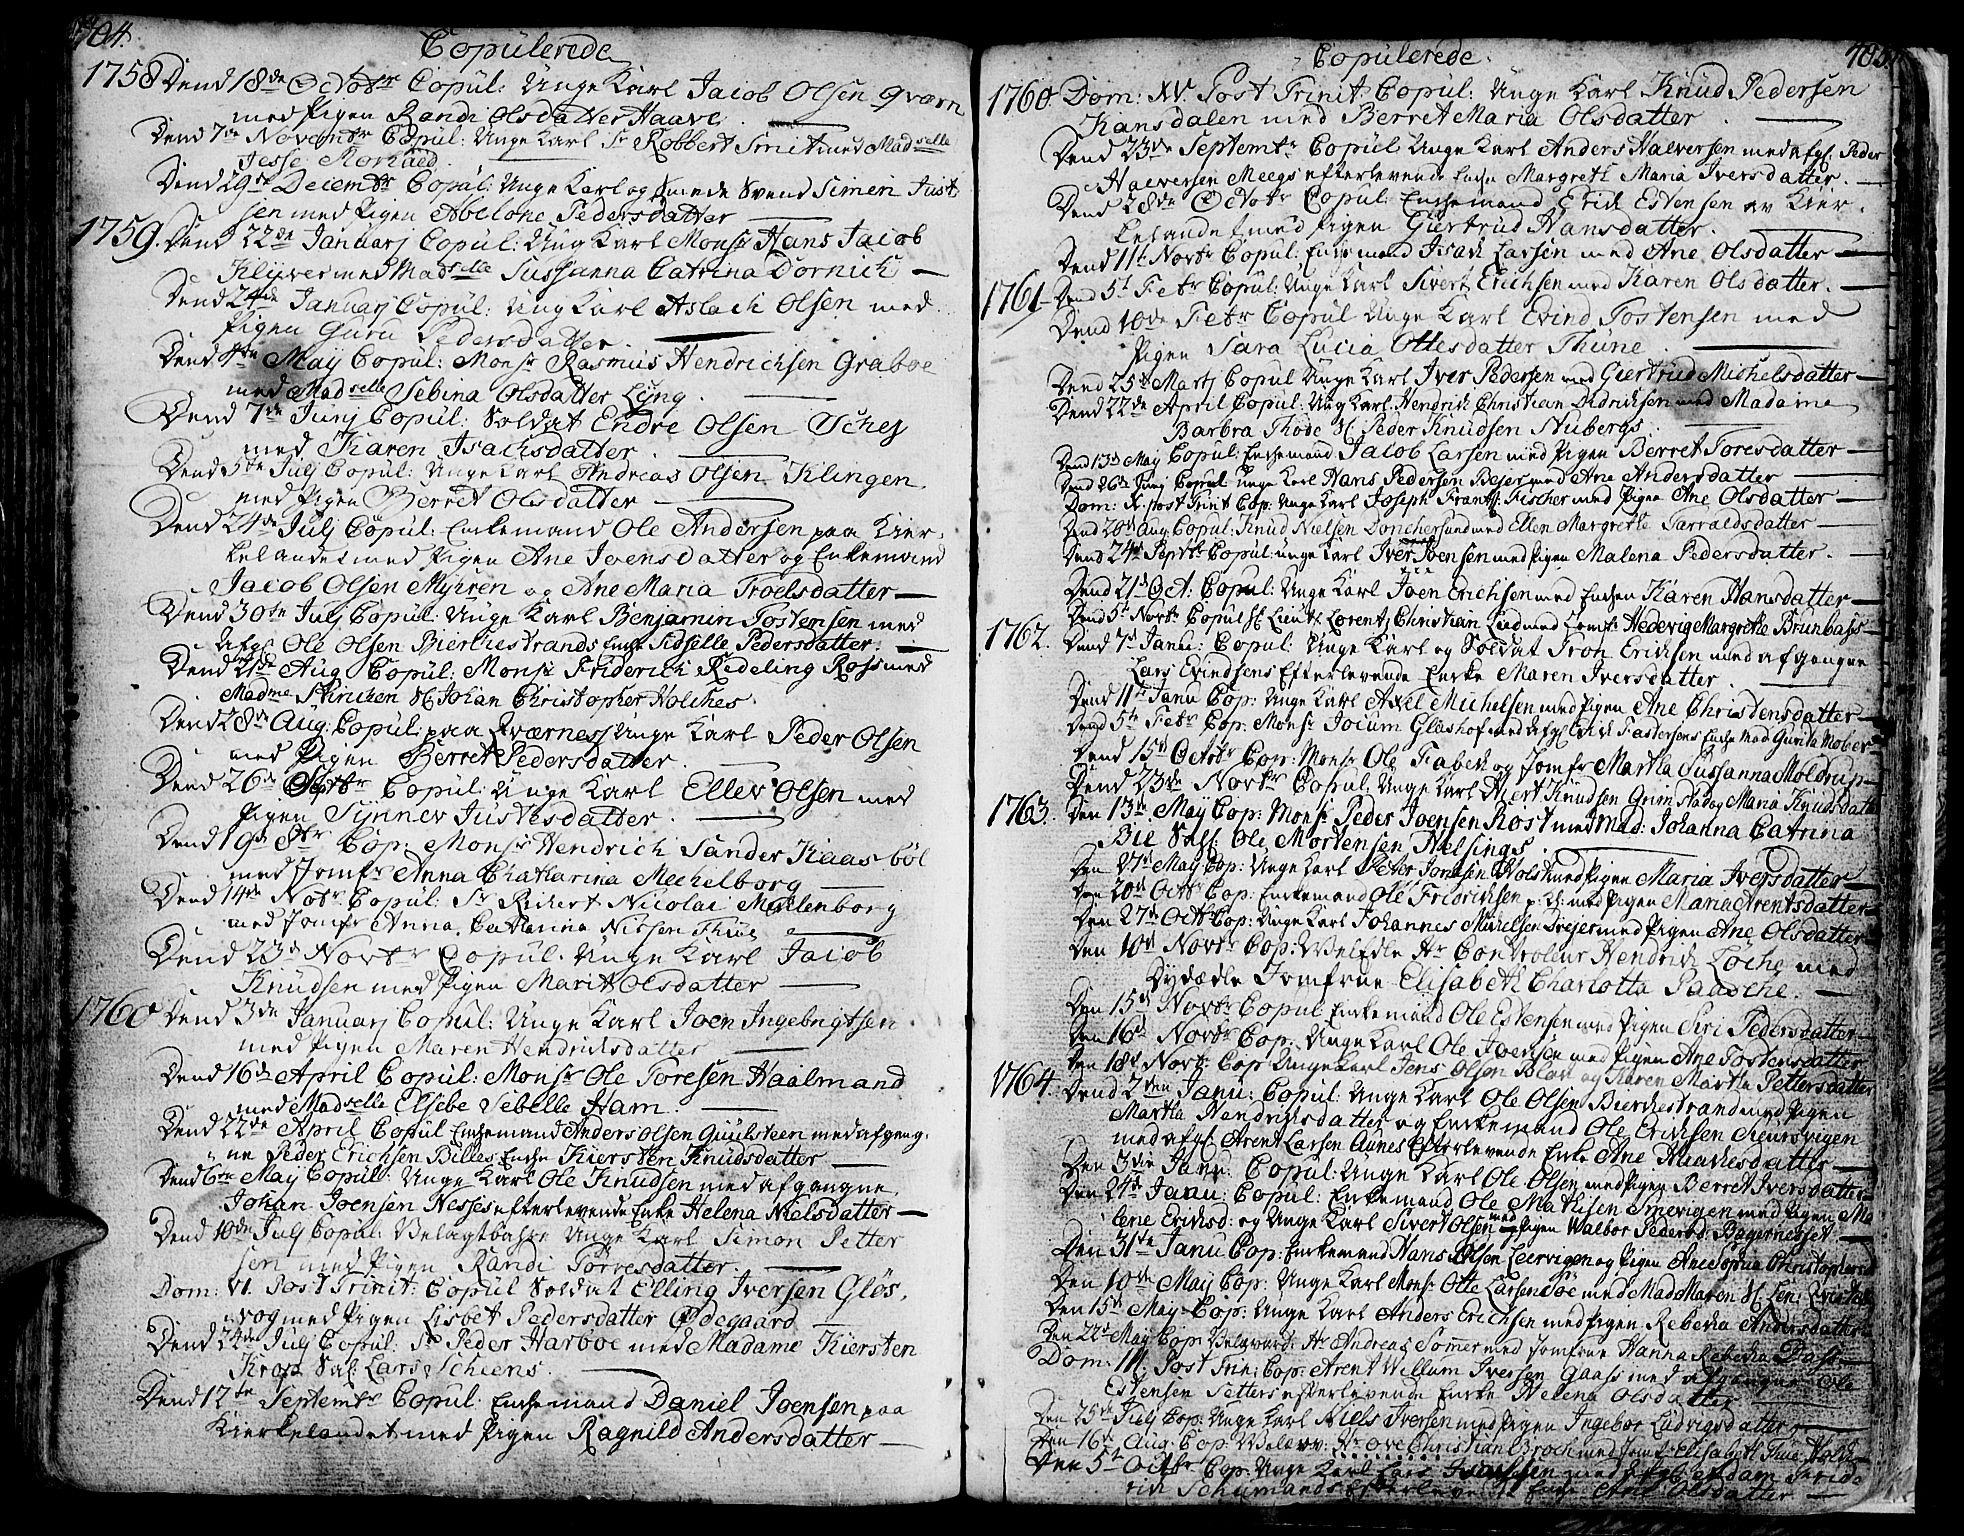 704.
Copulerede
1758 Dend 18de Octobr Copul: Unge Karl Jacob Olsen Qværn
med Pigen Randi Olsdatter Haave.
Dend 7de Novembr Copul: Unge Karl Sr Robbert Smit med Madselle
Jesse
Dend 29de Decembr Copul: Unge Karl og Smede Svend Simen Just
sen med Pigen Abelone Pedersdatter
1759. Dend 22de Januarj Copul: Ung Karl Monsr Hans Jacob
Klüver med Madselle Sussanna Catrina Dornich
Dend 24de Januarj Copul: Ung Karl Aslach Olsen med
Pigen Guru Pedersdatter.
Dend 4de May Copul: Monsr Rasmus Hendrichsen Graboe
med Madselle Sebina Olsdatter Lyng.
Dend 7de Junj Copul: Soldat Endre Olsen Schej
med Karen Isachsdatter
Dend 5te Julj Copul: Unge Karl Andreas Olsen Klingen.
med Pigen Berret Olsdatter
Dend 24de Julj Copul: Enkemand Ole Andersen paa Kier,
kelandet med Pigen Ane Ivensdatter og Enkemand
Jacob Olsen Myhren og Ane Maria Troelsdatter
Dend 30te Julj Copul: Unge Karl Benjamin Tostensen med
Afg: Ole Olsen Bierchestrands Enke Sidselle Pedersdatter.
Dend 21de Aug Copul: Monsr Friderich Rideling Ross med
Madme Stinchen Sl Johan Christopher Holches.
Dend 28de Aug: Copul: paa Qværnes Unge Karl Peder Olsen
med Pigen Berret Pedersdatter.
Dend 26de Septbr Copul: Unge Karl Ellev Olsen med
Pigen Synnev Justesdatter.
Dend 19de 8br Cop: Monsr Hendrich Sander Kaasbøl
med Jomfr Anna Chatharina Mechelborg
Dend 14de Nobr Copul: Sr Richert Nicolai Myhlenborg
med Jomfr Anna Catharina Nissen Thue
Dend 23de Novbr Copul. Unge Karl Jacob
Knudsen med Pigen Marit Olsdatter
1760 Dend 3de Januarj Copul: Unge Karl Joen Ingebrigtsen.
med Pigen Maren Hendrichsdatter
Dend 16de April Copul: Monsr Ole Toresen Haalmand
med Madselle Elsebe Sibelle Ham.
Dend 22de April Copul Enchemand Anders Olsen Guulsteen med afgeng,
ne Peder Erichsen Billes Enche Kiersten Knudsdatter
Dend 6te May Copul: Unge Karl Ole Knudsen med afgangne,
Johan Joensen Nesses efterlevende Enke Helena Nielsdatter
Dend 10de Julj Copul: Unge Karl Simon Petter
sen med Pigen Randi Torresdatter.
Dom: VI. Post Trinit: Copul Soldat Elling Iversen Gløs,
vog med Pigen Lisbet Pedersdatter Ødegaard
Dend 24de Julj Copul: Sr Peder Harboe med Madame Kiersten
Krop Sal: Lars Schiens.
Dend 12te Septembr Copul: Enchemand Daniel Joensen paa
Kierkelandet med Pigen Ragnild Andersdatter
705.
Copulerede.
1760. Dom: XV. Post Trinit Copul: Unge Karl Knud Pedersen
Kansdalen med Berret Maria Olsdatter.
Dend 23de Septembr Copul Unge Karl Anders Halversen med afg: Peder
Halversen Meegs efterlevende Enche Margrete Maria Iversdatter.
Dend 28de Octobr Copul: Enchemand Erich Estensen av Kier,
kelandet med Pigen Giertrud Hansdatter.
Dend 11te Novbr Copul: Enchemand Isach Larsen med Ane Olsdatter
1761 Dend 5te Febr Copul: Unge Karl Sivert Erichsen med Karen Olsdatter.
Dend 10de Febr Copul Unge Karl Evind Tostensen med
Pigen Sara Lucia Ottesdatter Thune
Dend 25de Martj Copul Unge Karl Iver Pedersen med Giertrud Michelsdatter
Dend 22de April Copul: Ung Karl Hendrich Christian Didrichsen med Madame
Barbra Thode Sl Peder Knudsen Nubergs.
Dend 13de May Copul: Enchemand Jacob Larsen med Pigen Berret Toresdatter
Dend 26de Junj Copul unge Karl Hans Pedersen med Ane Andersdatter
Dom: X. post Trinit Cop: Unge Karl Joseph Frantz: Fischer med Pigen Ane Olsdatter
Dend 20de Aug Copul: Knud Nielsen med Ellen Margrethe Tarraldsdatter
Dend 24de Septbr Copul unge Karl Iver Joensen med Pigen Malena Pedersdatter.
Dend 21de Oct: Copul: Unge Karl Joen Erichsen med Enchen Karen Hansdatter
Dend 5te Novbr Copul Sl Lieutn: Lorent Christian Lied med Jomfr Hedevig Margrethe Brunbass
1762. Dend 7de Janu: Copul: Unge Karl og Soldat Tron Erichsen med afgangne
Lars Evindsens Efterlevende Encke Maren Iversdatter.
Dend 11te Janu Cop: Unge Karl Axel Michelsen med Pigen Ane Christensdatter
Dend 5te Febr Cop: Monsr Jocum Glashof med
Dend 15de Octobr Cop: Monsr Ole Fabeck og Jomfr Martha Sussanna Moldrup
Dend 23de Novbr Copul. Unge Karl Knudsen Grimstad og Maria Knudsdatter
1763. Den 13de May Cop: Monsr Peder Joensen Rost med Mad: Johanna Catrina
Bie Sal: Ole Mortensen Nelsings.
Den 27de May Cop: Unge Karl Peter Jonsen Holst med Pigen Maria Iversdatter
Den 20de Octbr Cop: Enkemand Ole Fridrichsen med Pigen Maria Arentsdatter
Den 27de Octbr Cop: Unge Karl Johannes Michelsen Drejer med Pigen Ane Olsdatter
Den 10de Novbr Cop: Velædle Hr Controleur Hendrich Löche med
Dydædle Jomfrue Elisabeth Charlotta Paasche.
Den 15de Novbr Copul Enkemand Ole Estensen med Pigen Siri Pedersdatter
Den 16de Novbr Cop: Unge Karl Ole Iversen med Pigen Ane Tostensdatter
Den 18de Novbr Cop Unge Karl Jens Olsen Blax og Karen Martha Pettersdatter
1764. Dend 2den Janu: Copul: Unge Karl Ole Olsen Bierchestrand med Pigen
Martha Hendrichsdatter og Enkemand Ole Erichsen
med afgl Arent Larsen Aunes Efterlevende Enke Ane Haachesdatter
Den 3die Janu: Copul: Unge Karl Ole Olsen med Pigen Berret Iversdatter
Den 24de Janu: Copul: Enkemand Ole Mathisen Smevigen med Pigen Ma
lene Erichsd: og Unge Karl Sivert Olsen med Pigen Walbor Pedersd: Bagernesset
Den 31te Janu Cop: Enkemand Hans Olsen Leervigen og Pigen Ane Sophia Christophersd
Den 10de May Cop: Unge Karl Monsr Otte Larsen Søe med Mad Maren Sl
Den 15de May Cop: Unge Karl Anders Erichsen med Pigen Rebecka Andersdatter
Den 22de May Cop: Velærværd: Hr Andreas Sommer med Jomfrue Hanna Rebecka Dass
Dom: III. Post Trin: Cop: Arent Willum Iversen Gaass med afgangne Ole
Estensen Setters efterlevende Encke Helena Olsdatter
Den 25de Julj Cop: Unge Karl Niels Iversen med Pigen Ingebor Ludvigsdatter
Den 16de Aug: Cop: Hr Ove Christian Broch med Jomfr Elisabeth Thue
Den 5te Octbr Cop: Unge Karl Lars med
Schumands Efterlevende Encke Ane Olsdatter